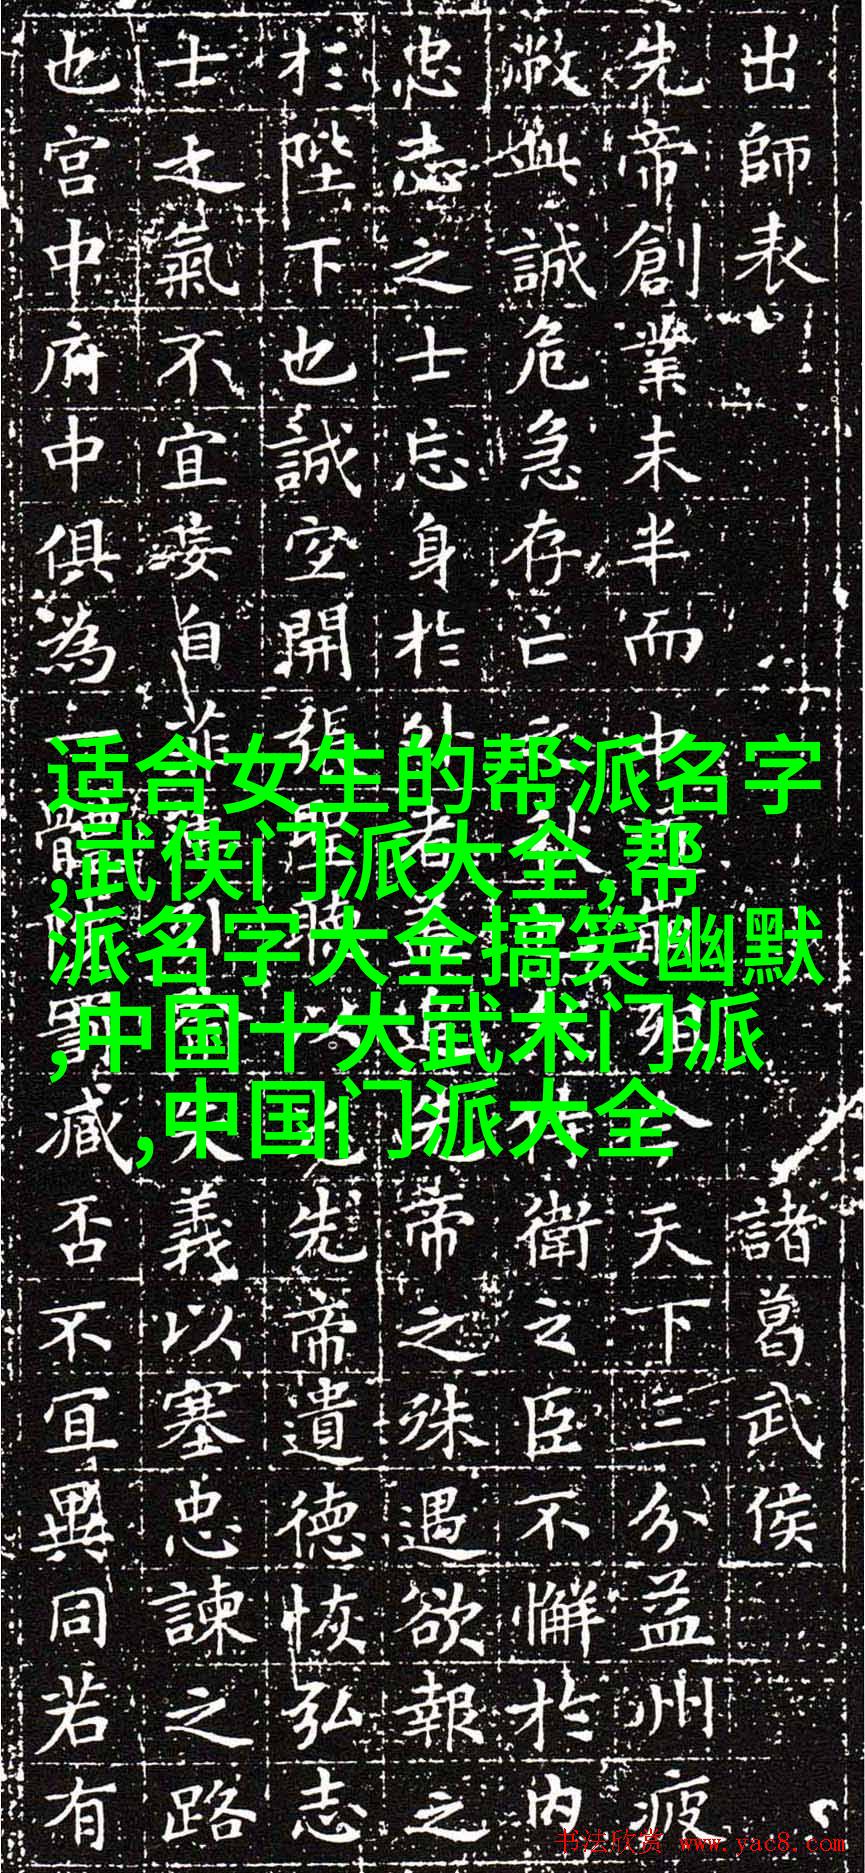 出師表 諸葛武侯
先帝創業未半而中殂今天下三分益州疲
敝此誠危急存亡之秋侍衛之臣不懈於内
忠志之士忘身於外者蓋追先帝之殊遇欲報之
於陛下也誠宜開張聖聽以光先帝遺德恢弘志
士之氣不宜妄自菲薄引喻失義以塞忠諫之路
也宮中府中俱為一體陟罰臧否不宜異同若有
适合女生的帮派名字
,武侠门派大全,帮
派名字大全搞笑幽默
,中国十大武术门派
,中国门派大全
书法欣赏 www.yac8.com